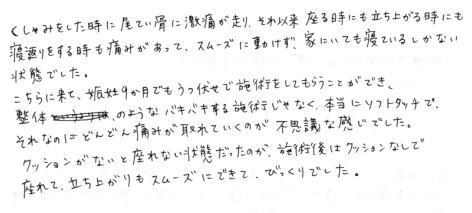 くしゃみをした時に尾てい骨に激痛が走り、それ以来座る時にも立ち上がる時にも
寝返りをする時も痛みがあって、スムーズに動けず、家にいても寝ているしかない
状態でした。
こちらに来て、妊娠9か月でもうつ伏せで施術をしてもらうことができ、
整体のようなバキバキする施術じゃなく、本当にソフトタッチで、
それなのにどんどん痛みが取れていくのが不思議な感じでした。
クッションがないと座れない状態だったのが、施術後はクッションなしで
座れて、立ち上がりもスムーズにできて、びっくりでした。